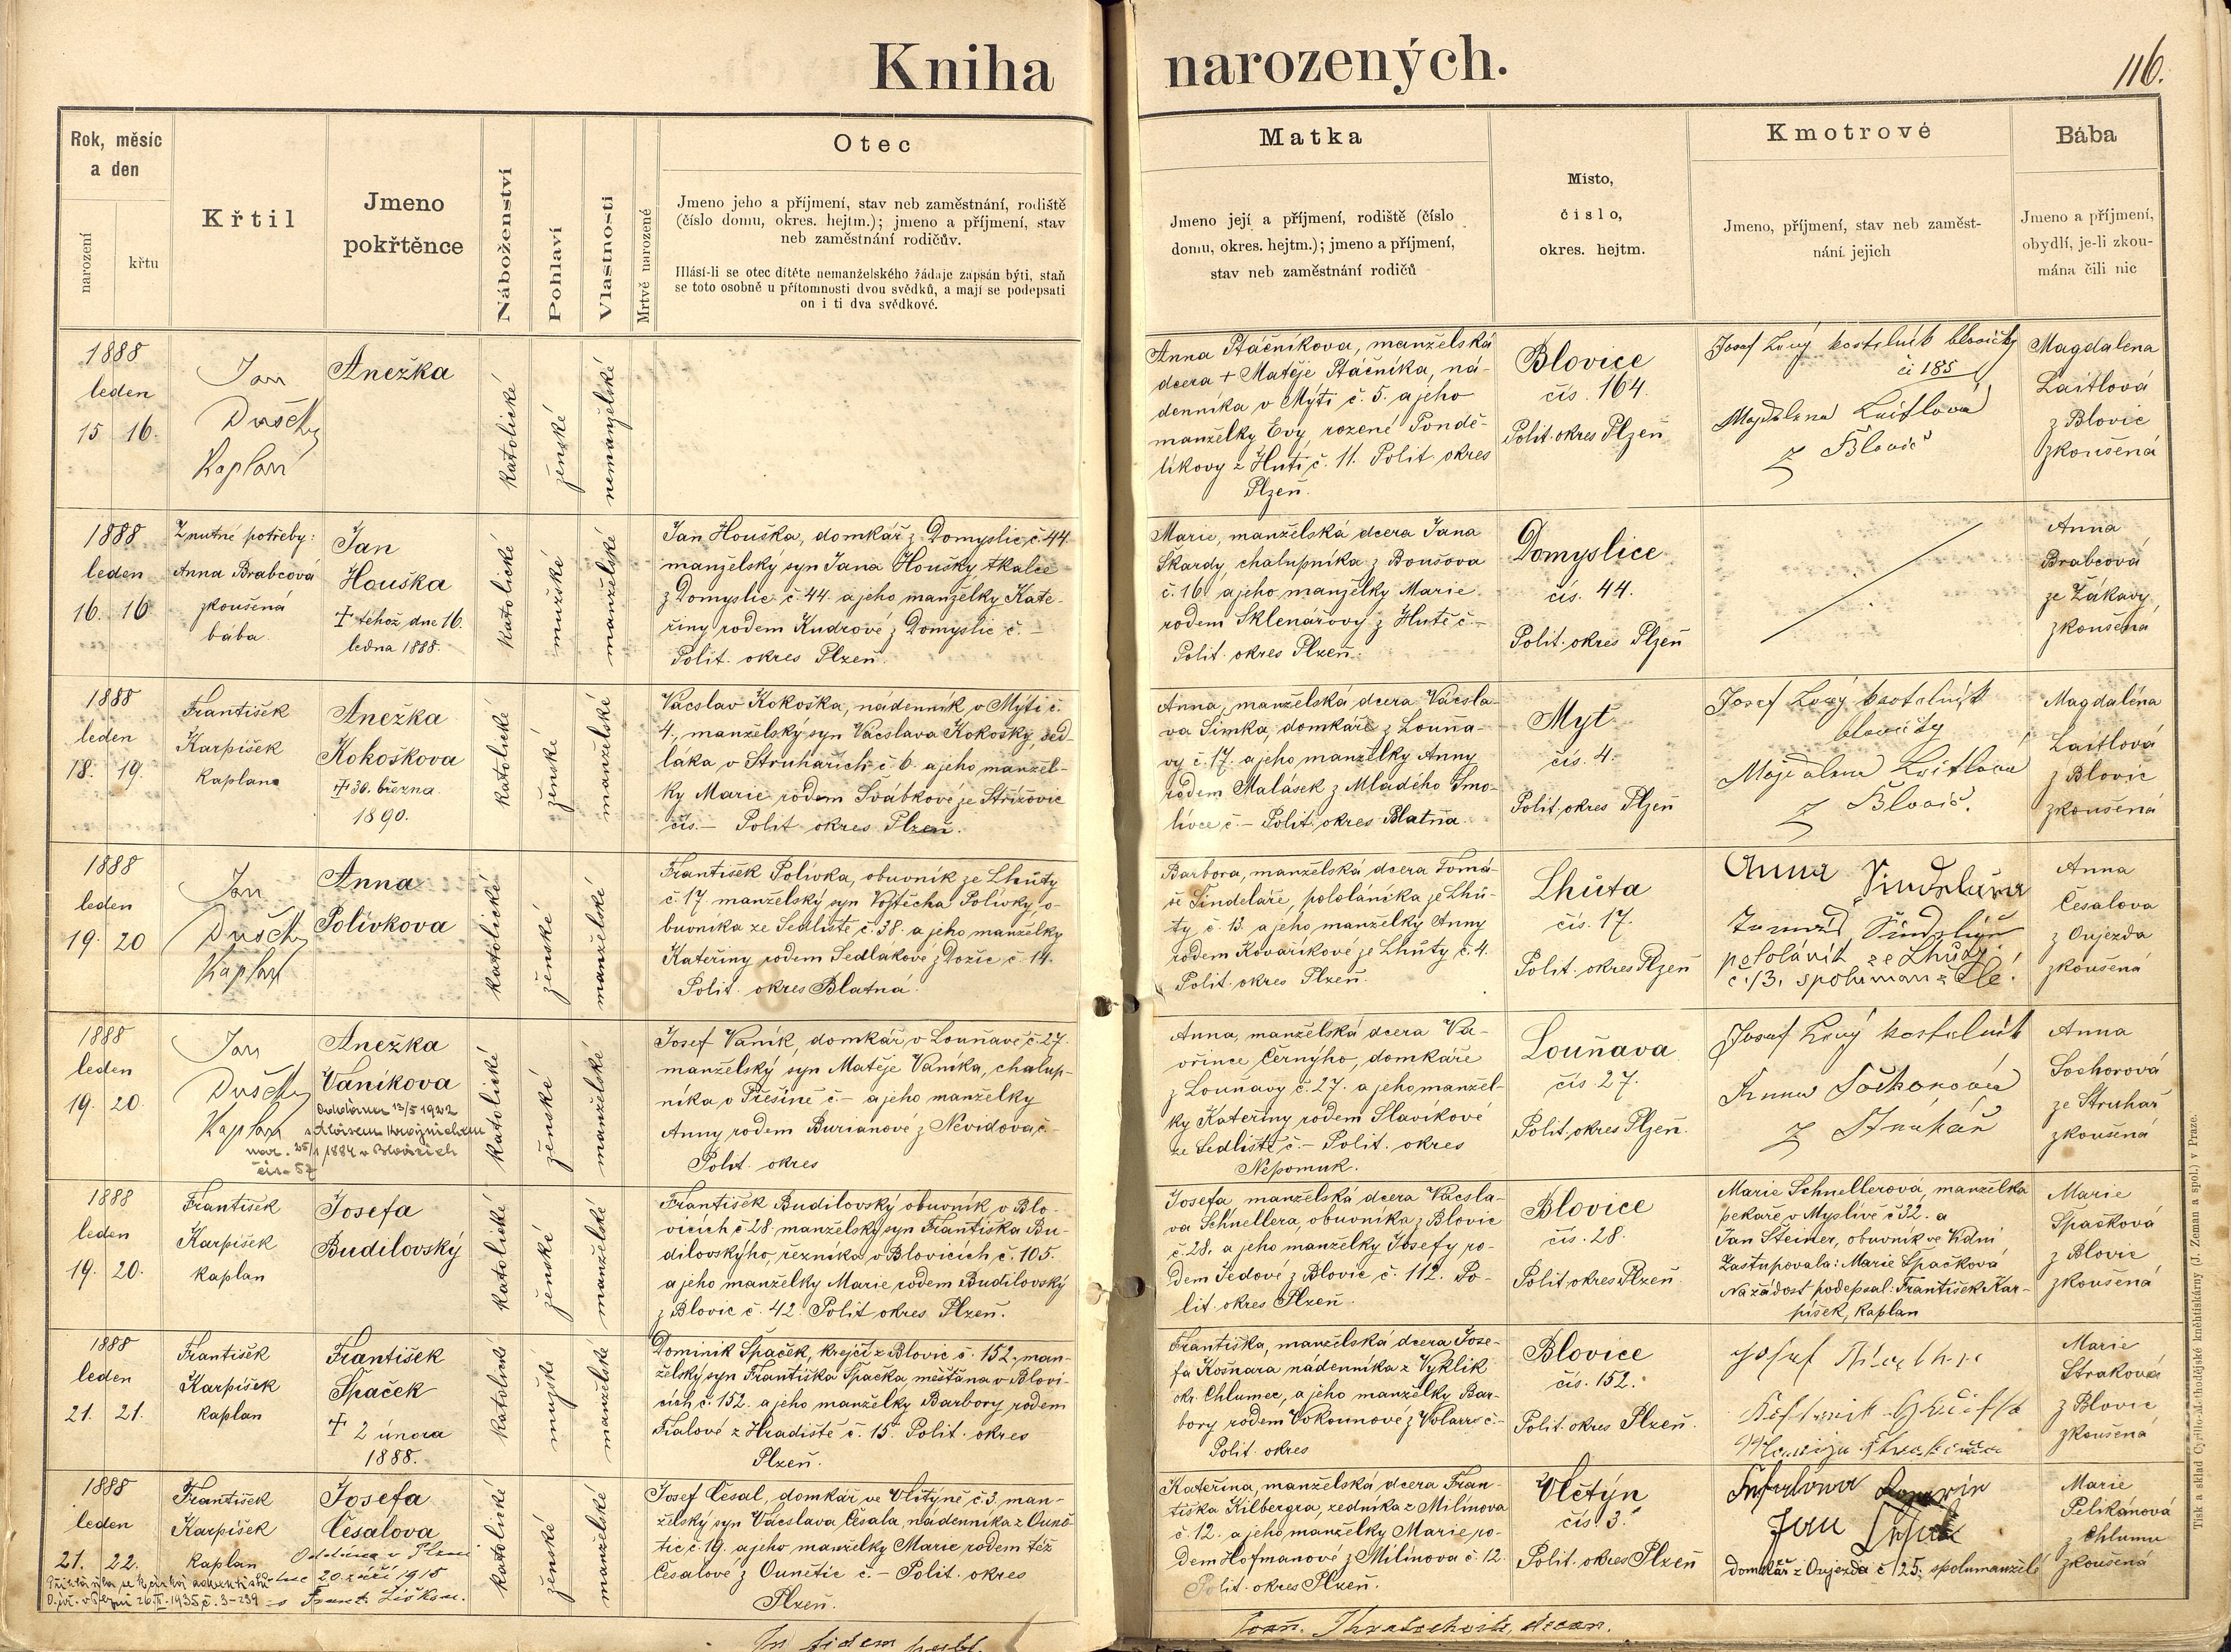 Kniha narozených.
116.
Rok, měsíc
a den
narození
křtu
Křtil
Jmeno
pokřtěnce
Náboženství
Pohlaví
Vlastnosti
Mrtvě narozené
Otec
Jmeno jeho a příjmení, stav neb zaměstnání, rodiště
(číslo domu, okres. hejtm.); jmeno a příjmení, stav
neb zaměstnání rodičův.
Hlásí-li se otec dítěte nemanželského žádaje zapsán býti, staň
se toto osobně u přítomnosti dvou svědků, a mají se podepsati
on i ti dva svědkové.
Matka
Jmeno její a příjmení, rodiště (číslo
domu, okres. hejtm.); jmeno a příjmení,
stav neb zaměstnání rodičů
Místo,
číslo,
okres. hejtm.
Kmotrové
Jmeno, příjmení, stav neb zaměst-
nání jejich
Bába
Jmeno a příjmení,
obydlí, je-li zkou-
mána čili nic
1888
leden
15 16.
Jan
Dušek
Kaplan
Anežka
katolické
ženské
nemanželské
Anna Ptáčníkova, manželská
dcera + Matěje Ptáčníka, ná-
denníka v Mýti č. 5. a jeho
manželky Evy, rozené Pondě-
líkovy z Huti č. 11. Polit. okres
Plzeň.
Blovice
čís. 164.
Polit. okres Plzeň
Josef Levý kostelník blovický
č 185
Magdalena Laitlová
z Blovic
Magdalena
Laitlová
z Blovic
zkoušená
1888
leden
16. 16
Z nutné potřeby:
Anna Brabcová
zkoušená
bába.
Jan
Houška
+ téhož dne 16.
ledna 1888.
katolické
mužské
manželské
Jan Houška, domkář z Domyslic č. 44.
manželský syn Jana Houšky, tkalce
z Domyslic č. 44. a jeho manželky Kate-
řiny rodem Kudrové z Domyslic č. –
Polit. okres Plzeň.
Marie, manželská dcera Jana
Škardy, chalupníka z Boušova
č. 16. a jeho manželky Marie
rodem Sklenářovy z Hutě č. –
Polit. okres Plzeň.
Domyslice
čís. 44.
Polit. okres Plzeň
Anna
Brabcová
ze Žákavy,
zkoušená
1888
leden
18. 19.
František
Karpíšek
kaplan
Anežka
Kokoškova
+ 30. března
1890.
katolické
ženské
manželské
Vácslav Kokoška, nádenník v Mýti č.
4., manželský syn Vácslava Kokošky, sed-
láka v Struhařích č. 6. a jeho manžel-
ky Marie rodem Švábkové ze Střížovic
čís. – Polit okres Plzeň.
Anna, manželská dcera Vácsla-
va Šimka, domkáře z Louňa-
vy č. 17. a jeho manželky Anny
rodem Malásek z Mladého Smo-
livce č. – Polit. okres Blatna.
Mýť
čís. 4.
Polit. okres Plzeň
Josef Levý kostelník
blovický
Magdalena Laitlová
z Blovic.
Magdaléna
Laitlová
z Blovic
zkoušená
1888
leden
19. 20
Jan
Dušek
Kaplan
Anna
Polívkova
katolické
ženské
manželské
František Polívka, obuvník ze Lhůty
č. 17. manželský syn Vojtěcha Polívky, o-
buvníka ze Sedliště č. 38. a jeho manželky
Kateřiny rodem Sedlákové z Dožic č. 14.
Polit. okres Blatná.
Barbora, manželská dcera Tomá-
še Šindeláře, pololáníka ze Lhů-
ty č. 13. a jeho manželky Anny
rodem Kovaříkové ze Lhůty č. 4.
Polit. okres Plzeň.
Lhůta
čís. 17.
Polit. okres Plzeň
Anna Šindelářa
Šindelář
pololáník ze Lhůty
č. 13. spolumanželé.
Anna
Česalova
z Oujezda
zkoušená
1888
leden
19. 20.
Jan
Dušek
Kaplan
Anežka
Vaníkova
Oddána 13/5 1922
s Aloisem
nar. 25/1 1884 v Blovicích
čís. 57
katolické
ženské
manželské
Josef Vaník, domkář v Louňavě č. 27.
manželský syn Matěje Vaníka, chalup-
níka v Přešíně č. – a jeho manželky
Anny rodem Burianové z Nevidova, č. –
Polit. okres
Anna, manželská dcera Va-
vřince Černýho, domkáře
z Louňavy č. 27. a jeho manžel-
ky Kateřiny rodem Slavíkové
ze Sedliště č. – Polit. okres
Nepomuk.
Louňava
čís 27.
Polit. okres Plzeň.
Josef Levý kostelník
Anna Sochorová
z Struhař
Anna
Sochorová
ze Struhař
zkoušná
1888
leden
19. 20.
František
Karpíšek
kaplan
Josefa
Budilovský
katolické
ženské
manželské
František Budilovský obuvník v Blo-
vicích č. 28. manželský syn Františka Bu-
dilovskýho, řezníka v Blovicích č. 105.
a jeho manželky Marie rodem Budilovský
z Blovic č. 42. Polit okres Plzeň.
Josefa, manželská dcera Vácsla-
va Schnellera, obuvníka z Blovic
č. 28. a jeho manželky Josefy ro-
dem Jedové z Blovic č. 112. Po-
lit. okres Plzeň.
Blovice
čís. 28.
Polit. okres Plzeň.
Marie Schnellerová, manželka
pekaře v Myslívě č 32. a
Jan Steiner, obuvník ve Kdni
Zastupovala: Marie Špačková
Na žádost podepsal: František Kar-
píšek, kaplan
Marie
Špačková
z Blovic
zkoušená
1888
leden
21. 21.
František
Karpíšek
kaplan
František
Špaček
+ 2 února
1888.
katolické
mužské
manželské
Dominik Špaček, krejčí z Blovic č. 152, man-
želský syn Františka Špačka, měšťana v Blovi-
cích č. 152. a jeho manželky Barbory rodem
Fialové z Hradiště č. 15. Polit. okres
Plzeň.
Františka, manželská dcera Jose-
fa Košnara nádenníka z Vyklik
okr. Chlumec, a jeho manželky Bar-
bory rodem Vokounové z č. –
Polit. okres
Blovice
čís. 152.
Polit. okres Plzeň.
Josef
Marie
Straková
z Blovic
zkoušená
1888
leden
21. 22.
František
Karpíšek
kaplan
Josefa
Česalova
Oddána v Plzni
dne 20. září 1915
s Frant. Liškou.
26. 1935 č. 3-239
katolické
ženské
manželské
Josef Česal, domkář ve Vlčtýně č. 3. man-
želský syn Vácslava Česala, nádenníka z Ouně-
tic č. 19. a jeho manželky Marie rodem též
Česalové z Ounětic č. – Polit. okres
Plzeň.
Kateřina, manželská dcera Fran-
tiška Kilbergra, zedníka z Milínova
č. 12. a jeho manželky Marie, ro-
dem Hofmanové z Milínova č. 12.
Polit. okres Plzeň.
Vlčtýn
čís 3.
Polit. okres Plzeň
Jan
domkář z Oujezda č 25. spolumanželé
Marie
Pelikánová
z Chlumu
zkoušená
In fidem publ.
Joan. decan.
Tisk a sklad Cyrillo-Methodějské knihtiskárny (J. Zeman a spol.) v Praze.